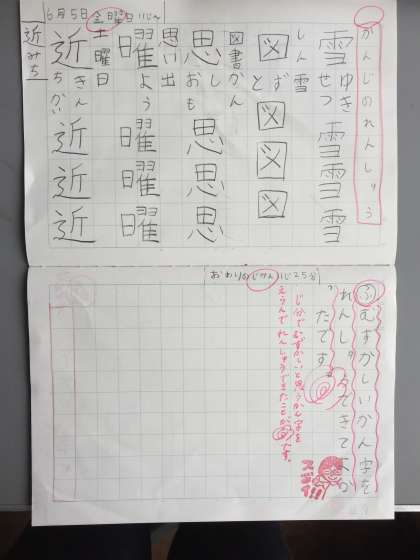 6月5日金曜日1じ〜
かんじのれんしゅう
雪 ゆき せつ 雪 雪 雪
しん雪
図 ず と 図 図 図
図書かん
思 し おも 思 思 思
思い出
曜 よう 曜 曜 曜
土曜日
近 きん ちかい 近 近 近
近みち
おわりのじかん1じ25分
ふむずかしいかん字を
れんしゅうできてよか
ったです。
じ分でむずかしいと思うかん字を
えらんでれんしゅうできたことが◎です。
スゴイ!!